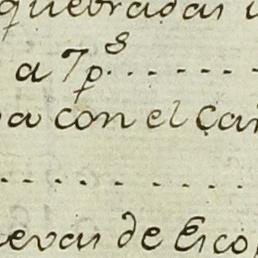 quebradas
a 7 p.s
a con el Ca
evas de Esco